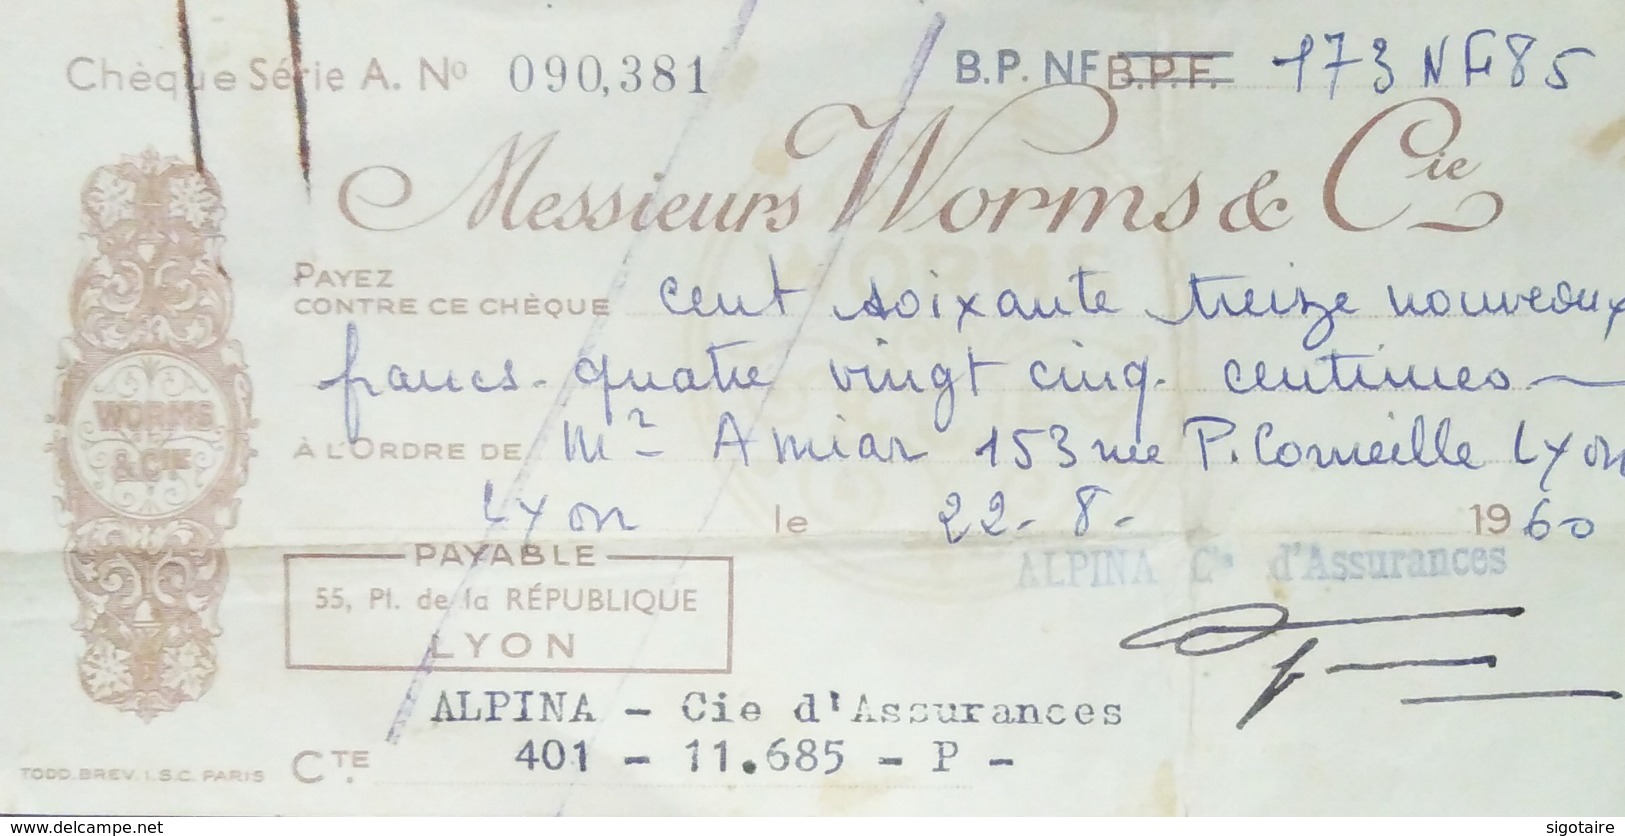 Chèque Série A. Nº 090,381 B.P. NF B.P.F. 173 NF 85
Messieurs Worms & Cie
PAYEZ
CONTRE CE CHÈQUE cent soixante treize nouveaux
francs - quatre vingt cinq - centimes —
À L'ORDRE DE Mr Amiar 153 rue P. Corneille Lyon
Lyon le 22 - 8 - 1960
WORMS
& CIE
WORMS
& CIE
PAYABLE
55, Pl. de la RÉPUBLIQUE
LYON
ALPINA Cie d'Assurances
ALPINA - Cie d'Assurances
CTE 401 - 11.685 - P -
TODD. BREV. I.S.C. PARIS
www.delcampe.net
sigotaire